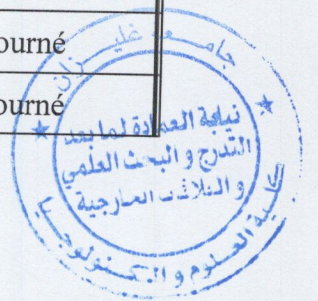 ourné
ourné
جامعة غليزان
نيابة العمادة لما بعد
التدرج و البحث العلمي
و العلاقات الخارجية
كلية العلوم و التكنولوجيا